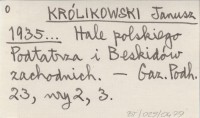 0
KRÓLIKOWSKI Janusz
1935... Hale polskiego
Podtatrza i Beskidów
zachodnich. — Gaz. Podh.
23, nry 2, 3.